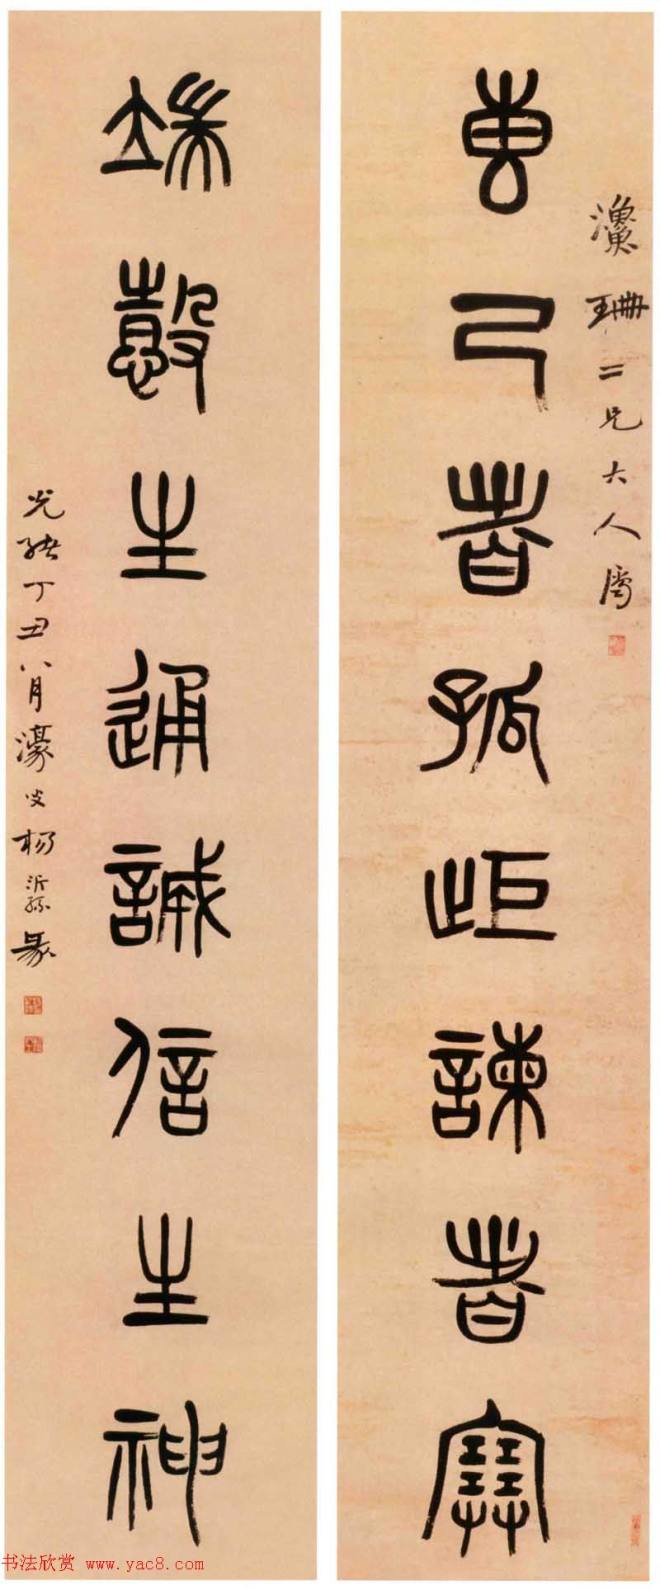 漁珊二兄大人屬
專己者孤歫諫者塞
端愨生通誠信生神
光緒丁丑八月濠叟楊沂孫篆
书法欣赏 www.yac8.com